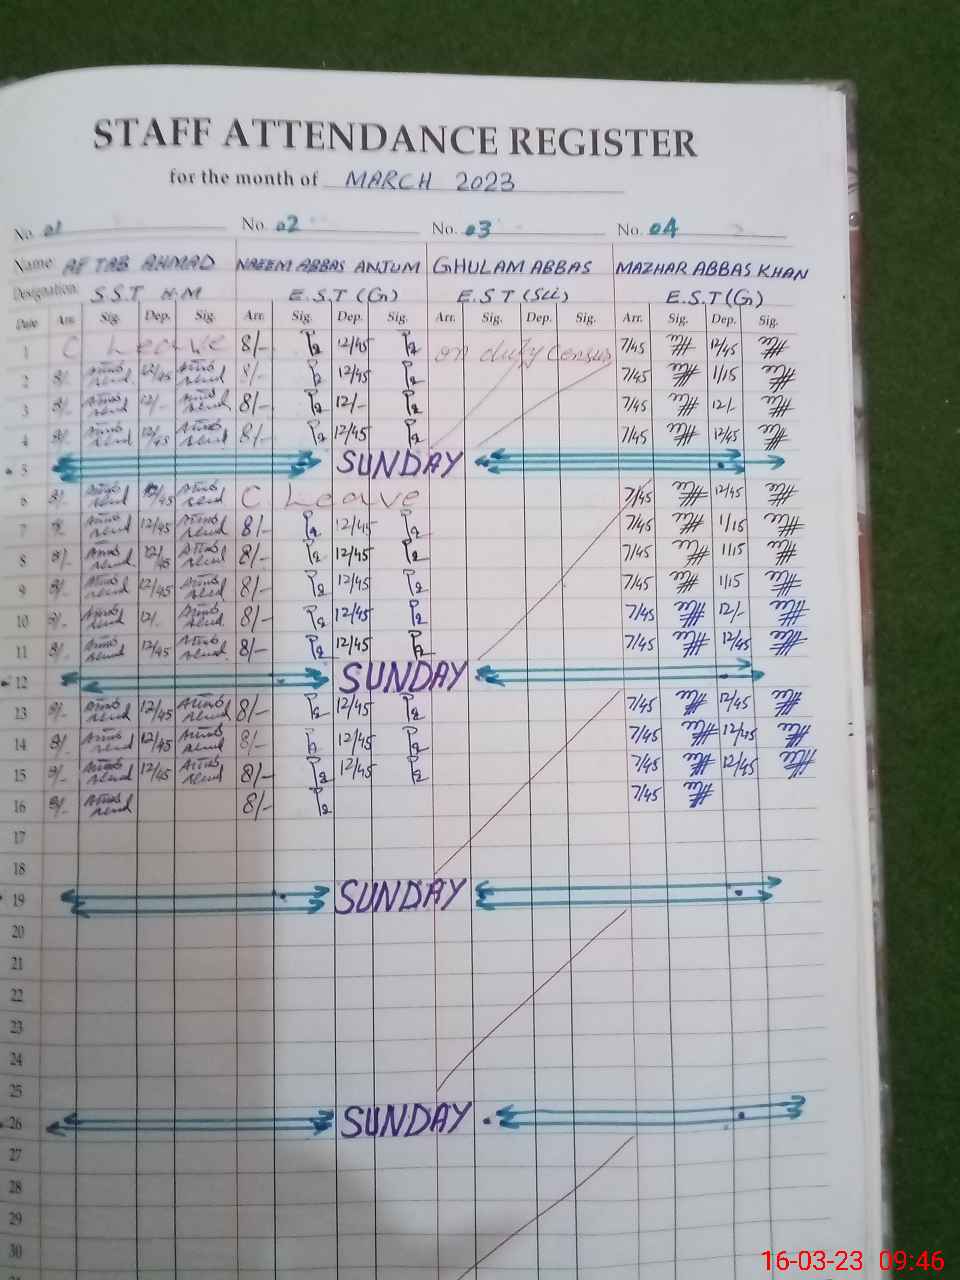 STAFF ATTENDANCE REGISTER
for the month of MARCH 2023
No. 01 No. 02 No. 03 No. 04
Name AFTAB AHMAD NAEEM ABBAS ANJUM GHULAM ABBAS MAZHAR ABBAS KHAN
Designation S.S.T H.M E.S.T (G) E.S.T (Sci) E.S.T (G)
Date Arr. Sig. Dep. Sig. Arr. Sig. Dep. Sig. Arr. Sig. Dep. Sig. Arr. Sig. Dep. Sig.
1 C Leave 8/- 12/45 on duty Census 7/45 12/45
2 8/- 12/45 8/- 12/45 7/45 1/15
3 8/- 12/- 8/- 12/- 7/45 12/-
4 8/- 12/45 8/- 12/45 7/45 12/45
5 SUNDAY
6 8/- 12/45 C Leave 7/45 12/45
7 8/- 12/45 8/- 12/45 7/45 1/15
8 8/- 12/45 8/- 12/45 7/45 1/15
9 8/- 12/45 8/- 12/45 7/45 1/15
10 8/- 12/- 8/- 12/45 7/45 12/-
11 8/- 12/45 8/- 12/45 7/45 12/45
12 SUNDAY
13 8/- 12/45 8/- 12/45 7/45 12/45
14 8/- 12/45 8/- 12/45 7/45 12/45
15 8/- 12/45 8/- 12/45 7/45 12/45
16 8/- 8/- 7/45
17
18
19 SUNDAY
20
21
22
23
24
25
26 SUNDAY
27
28
29
30
16-03-23 09:46